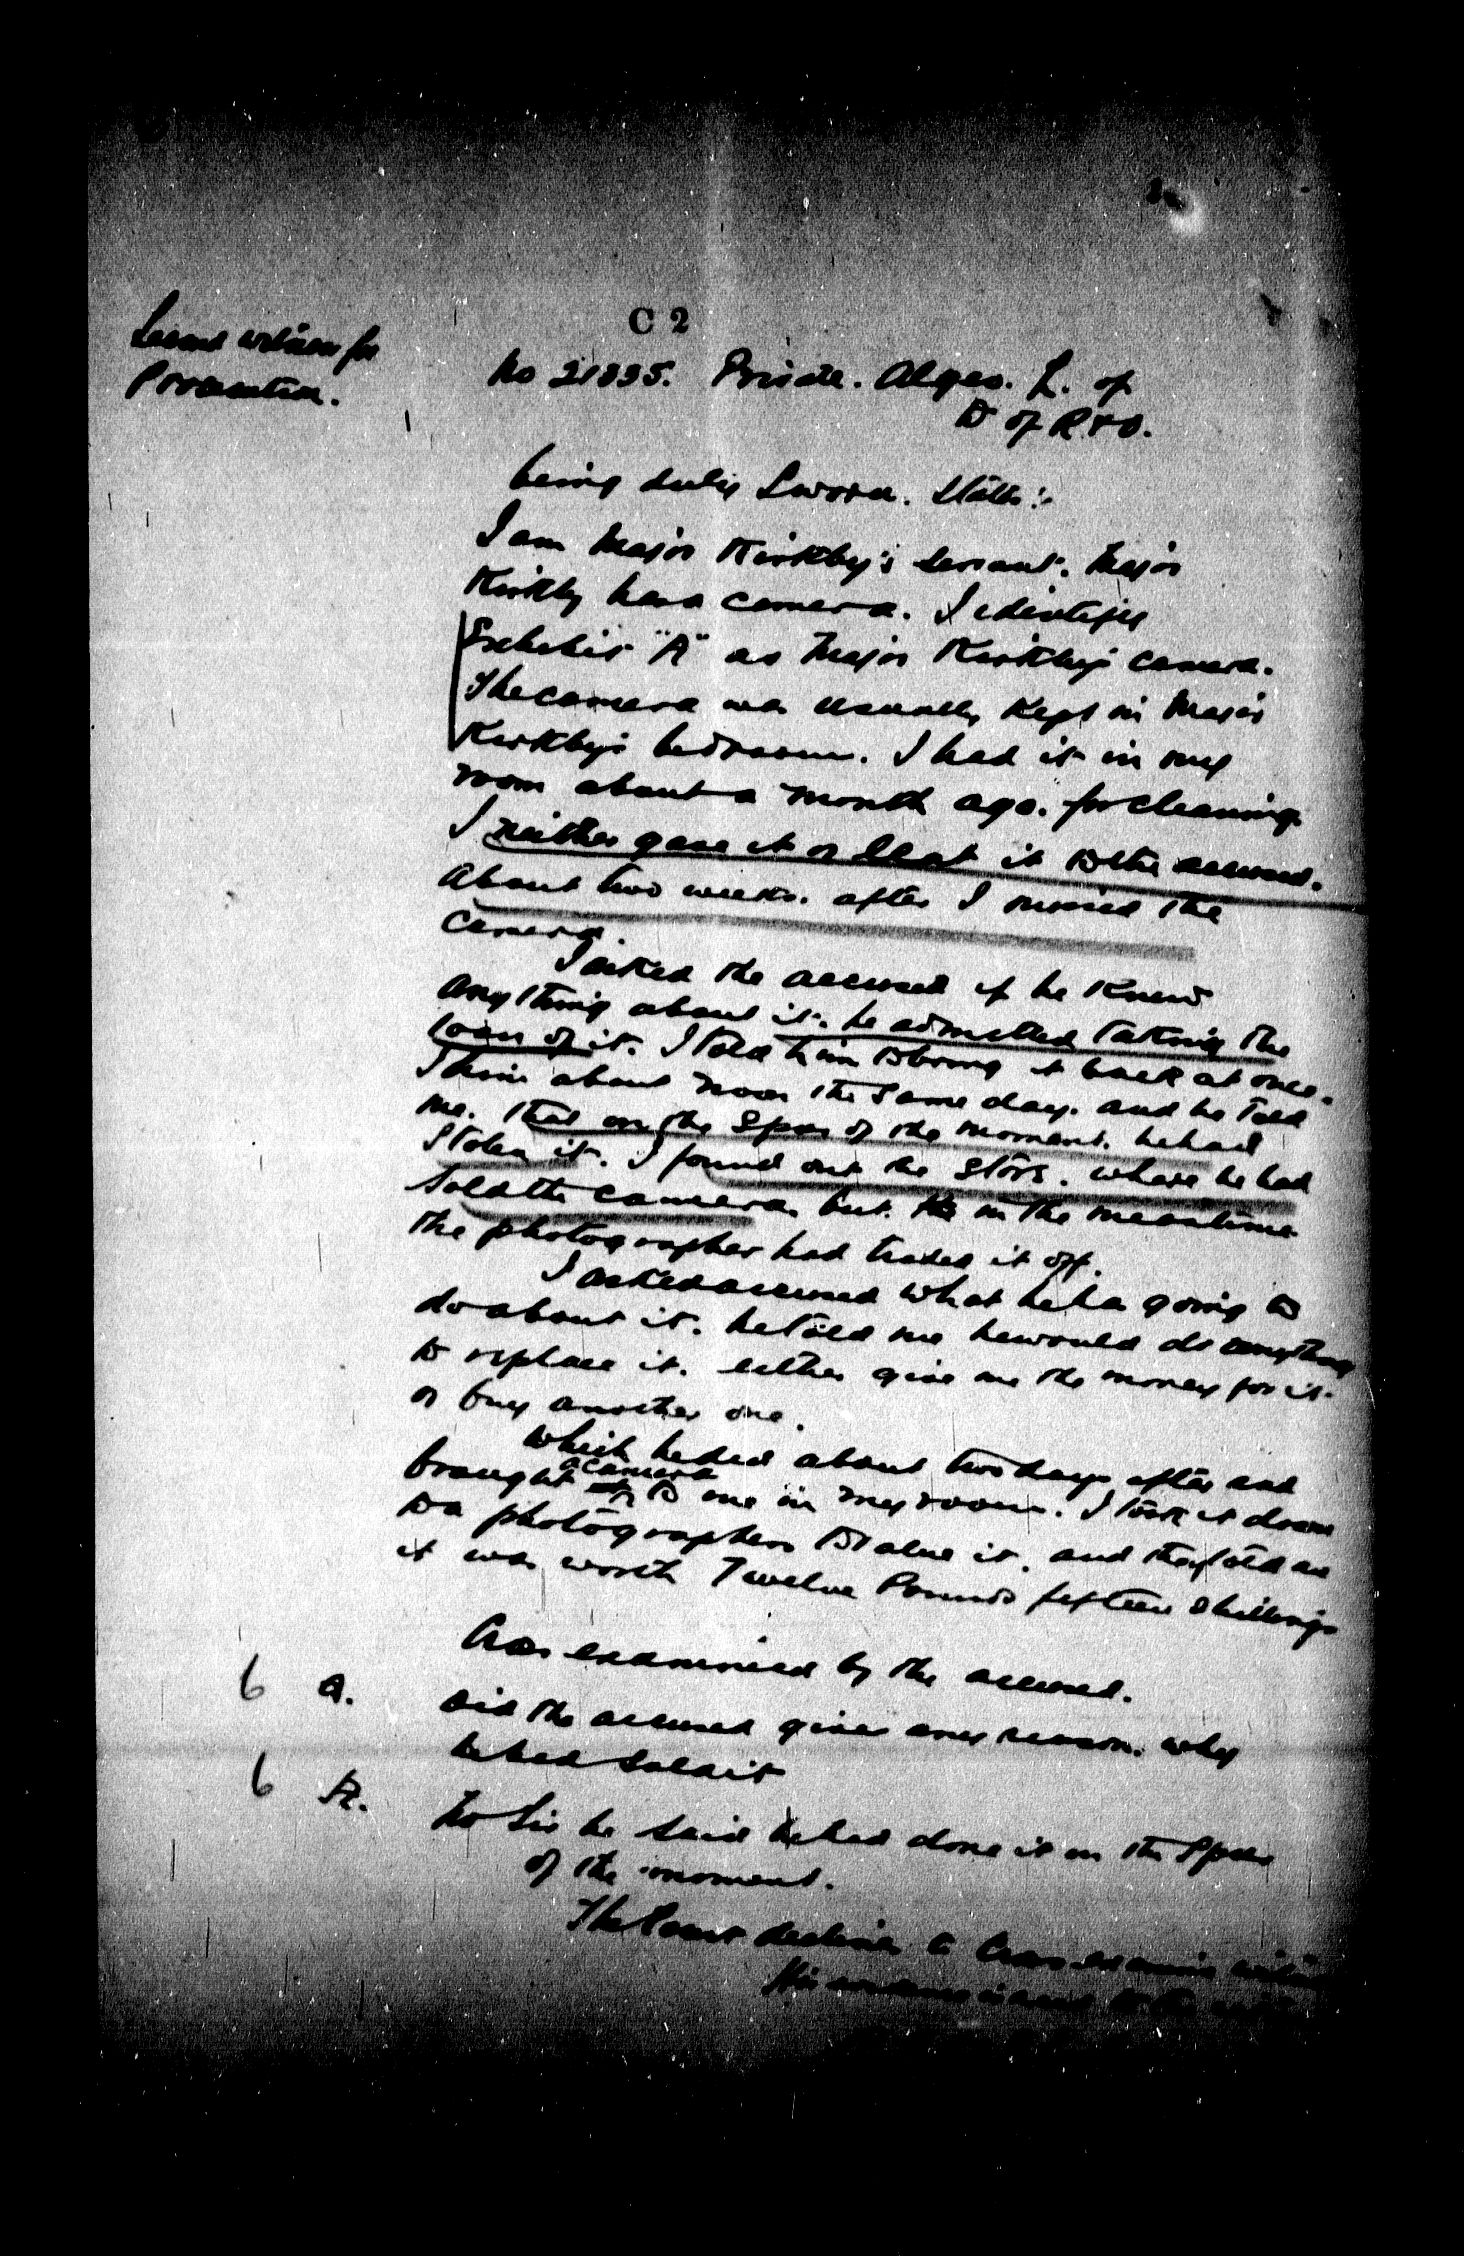 C 2
Second witness for
Prosecution.
No 21835. Private. Algeo. L. of
D of R & O.
being duly Sworn. States:-
I am Major Kirkby's servant. Major
Kirkby has a camera. I identify
Exhibit "A" as Major Kirkby's camera.
The camera was usually kept in Major
Kirkby's bedroom. I had it in my
room about a month ago. for cleaning.
I neither gave it or lent it to the accused.
About two weeks. after I missed the
Camera.
I asked the accused if he knew
anything about it. he admitted taking the
loan of it. I told him to bring it back at once.
I think about noon the same day. and he told
me. that on the spur of the moment. he had
stolen it. I found out the store. where he had
sold the camera. but in the meantime
the photographer had traded it off.
I asked accused what he was going to
do about it. he told me he would do anything
to replace it. either give me the money for it.
or buy another one.
Which he did about two days after and
brought a camera to me in my room. I took it down
to a photographers to value it. and they told me
it was worth Twelve Pounds fifteen shillings
Cross examined by the accused.
6 Q. Did the accused give any reason. why
he had sold it
6 A. No Sir he said he had done it on the spur
of the moment.
The Court declines to Cross examine